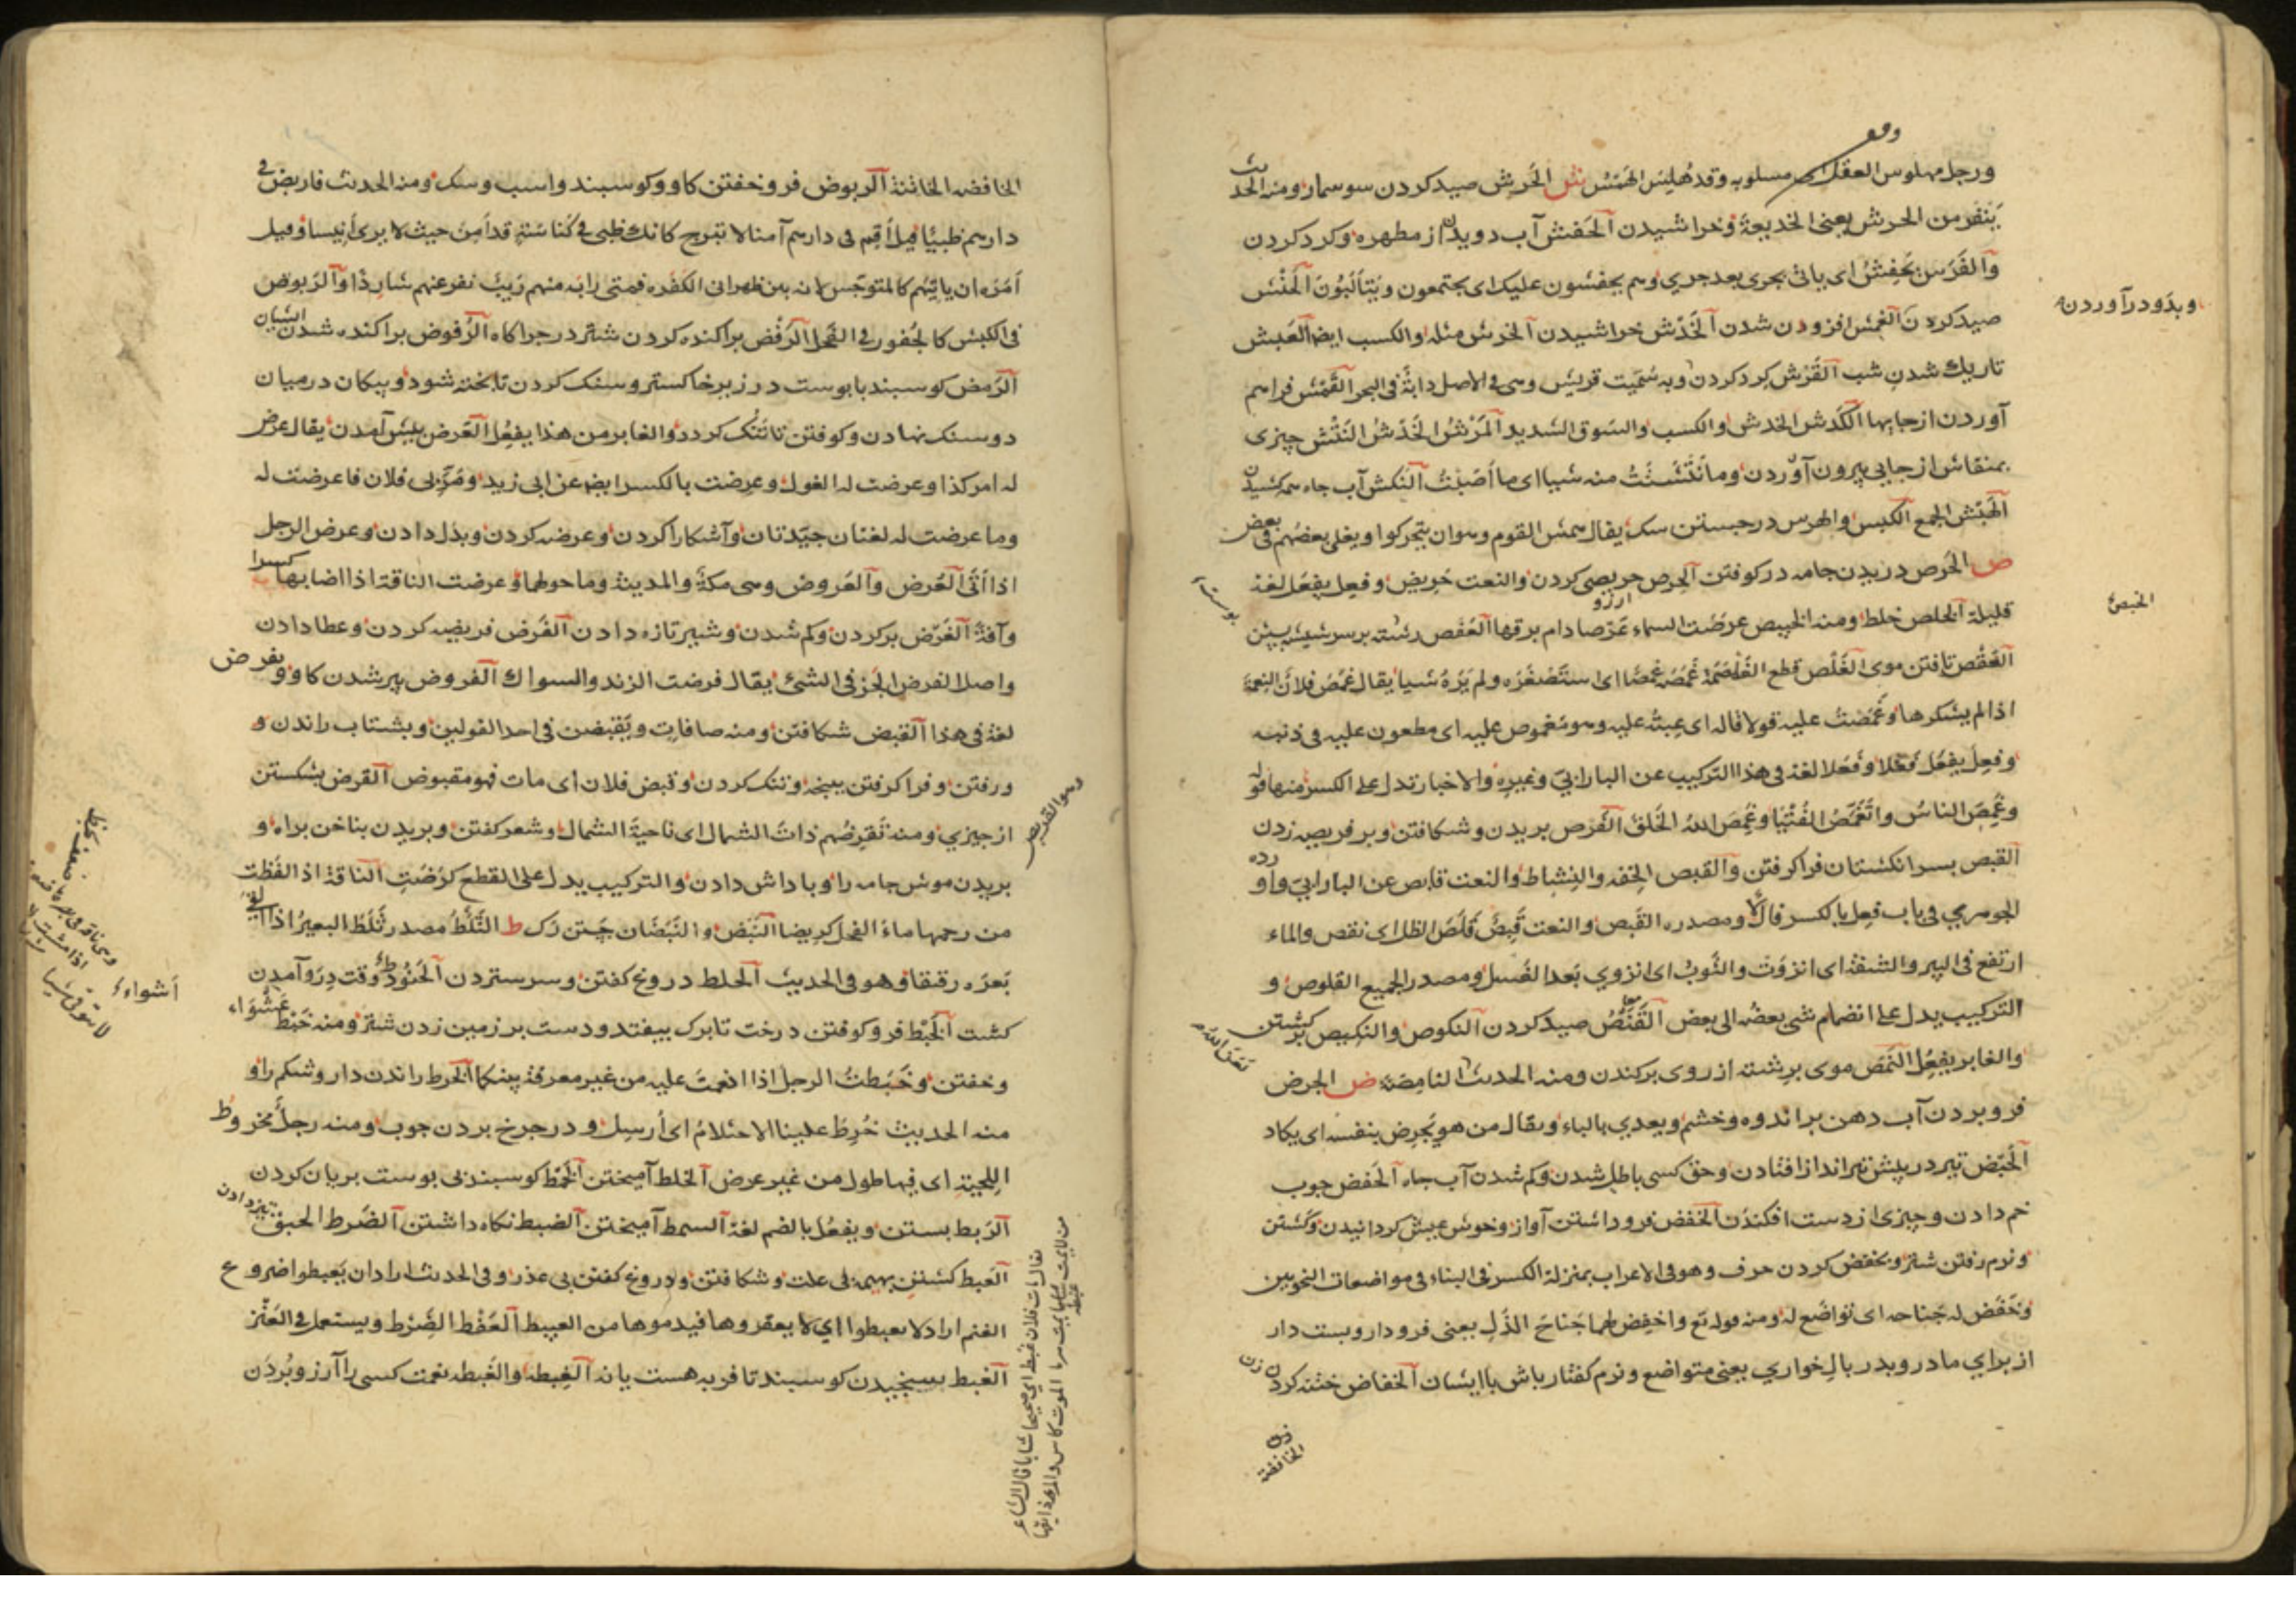 ورجل مهلوس العقل اى مسلوبه وقد هُلِسَ الهَمْسُ ش الحَرش صيد كردن سوسمار ومنه الحديث
يَنفر من الحرش يعنى الخديعة وخراشيدن الحَفش آب دويدن از مطهره وكرد كردن
وآلفَرَس يَحفِشُ اى ياتى بجرى بعد جرى وهم يحفشون عليك اى يجتمعون ويَتألَّبُونَ
وبدَو درآوردن
صيد كردن شدن الخَدْش خراشيدن الخرش مثله والكسب ايضا الغَبش
تاريك شدن شب القَرْش كرد كردن وبه سُمّيت قريش وهى فى الاصل دابّة فى البحر القَمْش فراهم
آوردن ازجايها الكَدْش الخدش والكسب والسَّوق الشديد المَرْش الخَدْش النَتْش چيزى
بمنقاش از جايى بيرون آوردن وما نَتَشتُ منه شيا اى ما أصَبْتُ النَكش آب جاه همه كشيدن
الهَبْش الجمع والكسب والهرس درجستن سك يقال همش القوم وهو ان يتحركوا ويغلى بعضُهم فى بعض
ص الخَرص دريدن جامه در كوفتن الحِرص حريصى كردن والنعت حَريص وفعِل يفعَل لغة
آرزو
الخبيصُ
قليلة الخلص خلط ومنه الخبيص عرصَت السماء عَرْصا دام برقها العَفص رشته برسر شيشه بستن
العَقْص تافتن موى الغَلْص قطع الغَلْصَمَة غَمَصَه غَمْصًا اى استَصْغَرَه ولم يَرَهُ شيا يقال غَمَصَ فلانٌ النِعمَة
اذا لم يشكرها وغَمَصْتُ عليه قولا قاله اى عِبتُه عليه وهو مَغموص عليه اى مطعون عليه فى دينه
وفَعِلَ يفعَل فَعْلا وفَعَلا لغة فى هذا التركيب عن البارابىّ وغيره والاخبار تدل على الكسر منها قوله
وغَمِصَ الناسَ واتَغْمَصُ الفُتْيَا وغَمِصَ اللهُ الخَلقَ الفَرص بريدن وشكافتن وبر فريصه زدن
القبص بسر انكشتان فرا كرفتن والقَبص الخِفة والنِشاط والنعت قابص عن البارابىّ واورده
الجوهرى فى باب فعِل بالكسر قال ومصدره القَبَص والنعت قَبِصٌ قَلَصَ الظل اى نقص والماء
ارتفع فى البير والشفة اى انزوَتْ والثَّوبُ اى انزوى بَعد الغَسل ومصدر الجميع القلوص و
التركيب يدل على انضمام شئ بعضُه الى بعض القَنَصُ صيد كردن النكوص والنكيص بركشتن
والغابر يفعِل النَمَص موى برشته از روى بركندن ومنه الحديث النامِصَة ض الجرض
فرو بردن آب دهن بر اندوه وخشم ويعدى بالباء ويقال من هو يَجرِض بنفسه اى يكاد
الحَبَض تير در پيش تيرانداز افتادن وحق كسى باطل شدن وكم شدن آب جاه الحَفض چوب
خم دادن وچيزى از دست افكندن الخفض فرو داشتن آواز وخوش عيش كردانيدن وكشتن
ونرم رفتن شتر وبخفض كردن حرف وهو فى الاعراب بمنزلة الكسر فى البناء فى مواضعات النحويين
وخَفَض له جناحه اى تواضَع له ومنه قوله تع واخفِض لهما جَناحَ الذُلِّ يعنى فرودار وپست دار
از براى مادر وپدر بالِ خوارى يعنى متواضع ونرم كفتار باش با ايشان الخفاض ختنه كردن زن
الخافضة
الخافضه الخاتنة الربوض فرو خفتن كاو وكوسبند واسب وسك ومنه الحديث فاربض فى
دارهم ظبيًا قيل أقِم فى دارهم آمنا لا تبرح كانك ظبى فى كناسَته قد أمِن حيث لا يرى أنيسا وقيل
اَمَرَه ان ياتيَهُم كالمتوحّش لانه بين ظهرانى الكفره فمتى رابَه منهم رَيبٌ نفر عنهم شارِدًا والرَبوض
فى الكبش كالجُفور فى الفَحل الرَفْض پراكنده كردن شتر در چراكاه الرُفوض پراكنده شدن ايشان
الرَمض كوسبند با پوست در زير خاكستر وسنك كردن تا پخته شود وپيكان درميان
دو سنك نهادن وكوفتن تا تُنُك كردد والغابر من هذا يفعِل العَرض پيش آمدن يقال عرض
له امر كذا وعرضت له الغول وعرضت بالكسر ايضا عن ابى زيد ومَرَّ بى فلان فما عرضت له
وما عرضت له لغتان جيّدتان وآشكارا كردن وعرضه كردن وبدل دادن وعرض الرجل
اذا أتى العَرض والعَروض وهى مكة والمدينة وما حولهما وعرضت الناقة اذا اصابها كسر
وآفة الغَرض پر كردن وكم شدن وشير تازه دادن الفَرض فريضه كردن وعطا دادن
واصل الفرض الحَزّ فى الشئ يقال فرضت الزند والسواك الفروض پير شدن كاو ويفرض
لغة فى هذا القبض شكافتن ومنه صافات ويَقبِضن فى احد القولين وبشتاب راندن و
ورفتن وفرا كرفتن بپنجه وتنك كردن وقبض فلان اى مات فهو مقبوض القرض بشكستن
وهو القريض
از چيزى ومنه تَقرِضُهم ذاتَ الشمال اى ناحيةَ الشمال وشعر كفتن وبريدن بناخن براه و
بريدن موش جامه را وپاداش دادن والتركيب يدل على القطع كرَضَتِ الناقة اذا لفَظت
من رحمها ماءَ الفحل كريضا النَبض والنَبَضَان جَستن رك ط الثَلْطُ مصدر ثَلَطَ البعيرُ اذا القى
أشواءُ
بَعرَه رقيقا وهو فى الحديث الحلط دروغ كفتن وسر ستردن الحَنُوط وقت درو آمدن
كشت الخَبْط فرو كوفتن درخت تا برك بيفتد ودست بر زمين زدن شتر ومنه خَبْط عَشْوَاء
وخفتن وخَبَطتُ الرجل اذا انعمتَ عليه من غير معرفة بينكما الخَرط راندن دارو شكم را و
منه الحديث خُرِطَ علينا الاحتلامُ اى أرسِل ودر چرخ بردن چوب ومنه رجل مخروط
اللحية اى فيها طول من غير عرض الخلط آميختن الخَمْط كوسبند بى پوست بريان كردن
الرَبط بستن ويفعُل بالضم لغة السمط آميختن الضبط نكاه داشتن الضَرط الحبق تيز دادن
العَبط كشتن بهيمه بى علت وشكافتن ودروغ كفتن بى عذر وفى الحديث اراد ان يَعبطوا ضروع
الغنم اراد لا يعبطوا اى لا يعقروها فيدموها من العبيط العَفْط الضَرْط ويستعمل فى العَنْز
الغَبط بسنجيدن كوسبند تا فربه هست يا نه الغِبطه والغَبطه نعمت كسى را آرزو بُردن
يقال مات فلان عَبطة اى صحيحا شابا قال الشاعر
من لا يمت عبطة يمت هرما الموت كاس والمرء ذائقها